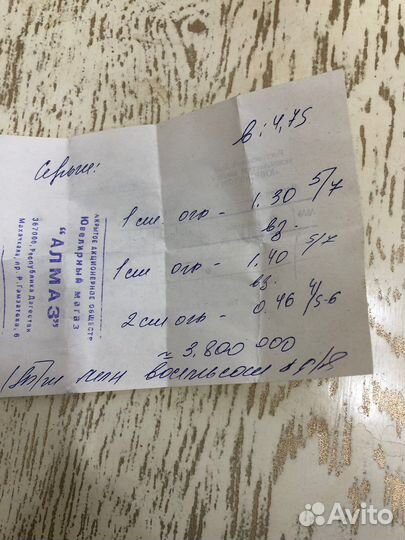 в: 4,75
Серьги:
1 см огр - 1.30 5/7
вз.
1 см огр - 1,40 5/7
вз. 
2 см огр - 0.46 4/5-6
≈ 3.800 000
(три млн восемьсот
АКРЫТОЕ АКЦИОНЕРНОЕ ОБЩЕСТ
Ювелирный магаз
"АЛМАЗ"
367000, Республика Дагестан
Махачкала, пр. Р. Гамзатова, 6
Avito